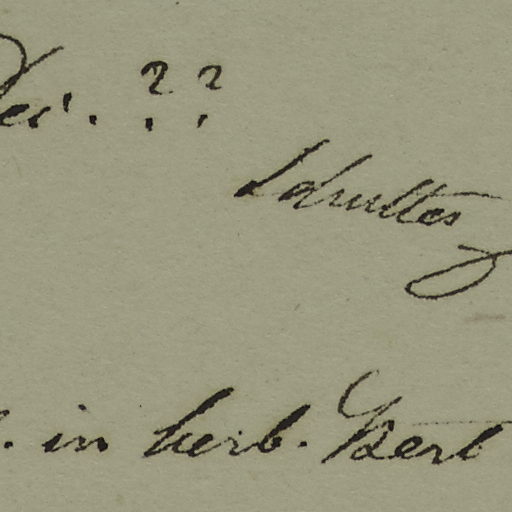 ? ?
Schultes
in herb. Berl